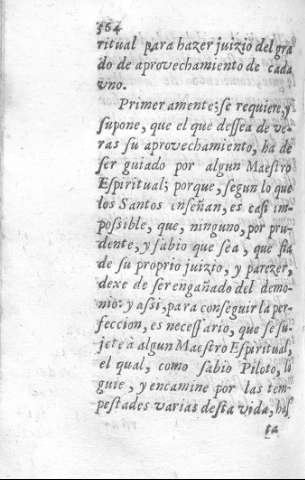 364
ritual para hazer juizio del gra
do de aprovechamiento de cada
vno.
Primeramente; se requiere, y
supone, que el que dessea de ve-
ras su aprovechamiento, ha de
ser guiado por algun Maestro
Espiritual; porque, segun lo que
los Santos enseñan, es casi im-
possible, que, ninguno, por pru-
dente, y sabio que sea, que fia
de su proprio juizio, y parezer,
dexe de ser engañado del demo-
nio: y assi, para conseguir la per-
feccion, es necessario, que se su-
jete à algun Maestro Espiritual,
el qual, como sabio Piloto, lo
guie, y encamine por las tem-
pestades varias desta vida, has
ta